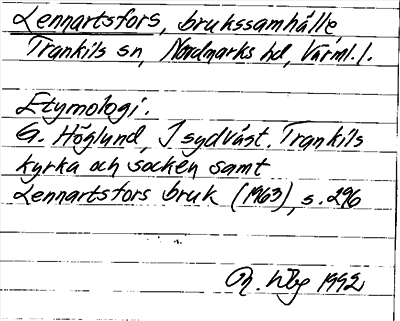 Lennartsfors, brukssamhälle
Trankils sn, Nordmarks hd, Värml. l.
Etymologi.
G. Höglund, I sydväst. Trankils
kyrka och socken samt
Lennartsfors bruk (1963), s. 296
1992